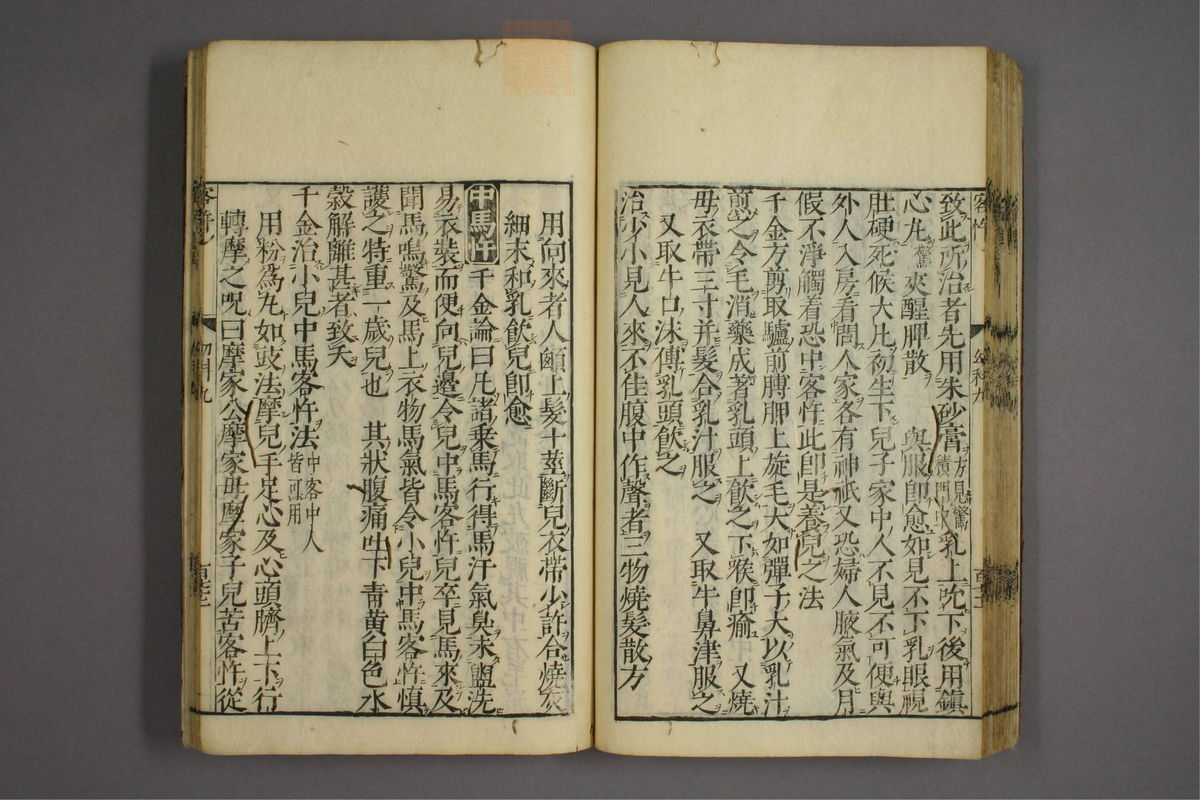 致此所治者先用朱砂膏方見驚積門中乳上吮下後用鎮
心丸驚夾醒脾散與服即愈如見不下乳眼視
肚硬死候大凡初生下兒子家中人不見不可便與
外人入房看問人家各有神祇又恐婦人腋氣及月
假不淨觸着恐中客忤此即是養兒之法
千金方剪取驢前膊胛上旋毛大如彈子大以乳汁
煎之令毛消藥成著乳頭上飲之下喉即瘉 又燒
母衣帶三寸并髮合乳汁服之 又取牛鼻津服之
又取牛口沫傅乳頭飲之
治少小見人來不佳腹中作聲者三物燒髮散方
用向來者人顖上髮十莖斷兒衣帶少許合燒灰
細末和乳飲兒即愈
中馬忤 千金論曰凡諸乘馬行得馬汗氣臭未盥洗
易衣裝而便向兒邊令兒中馬客忤兒卒見馬來及
聞馬鳴驚及馬上衣物馬氣皆令小兒中馬客忤慎
護之特重一歲兒也 其狀腹痛吐下青黃白色水
穀解離甚者致夭
千金治小兒中馬客忤法中客中人皆可用
用粉為丸如豉法摩兒手足心及心頭臍上下行
轉摩之呪曰摩家公摩家母摩家子兒苦客忤從